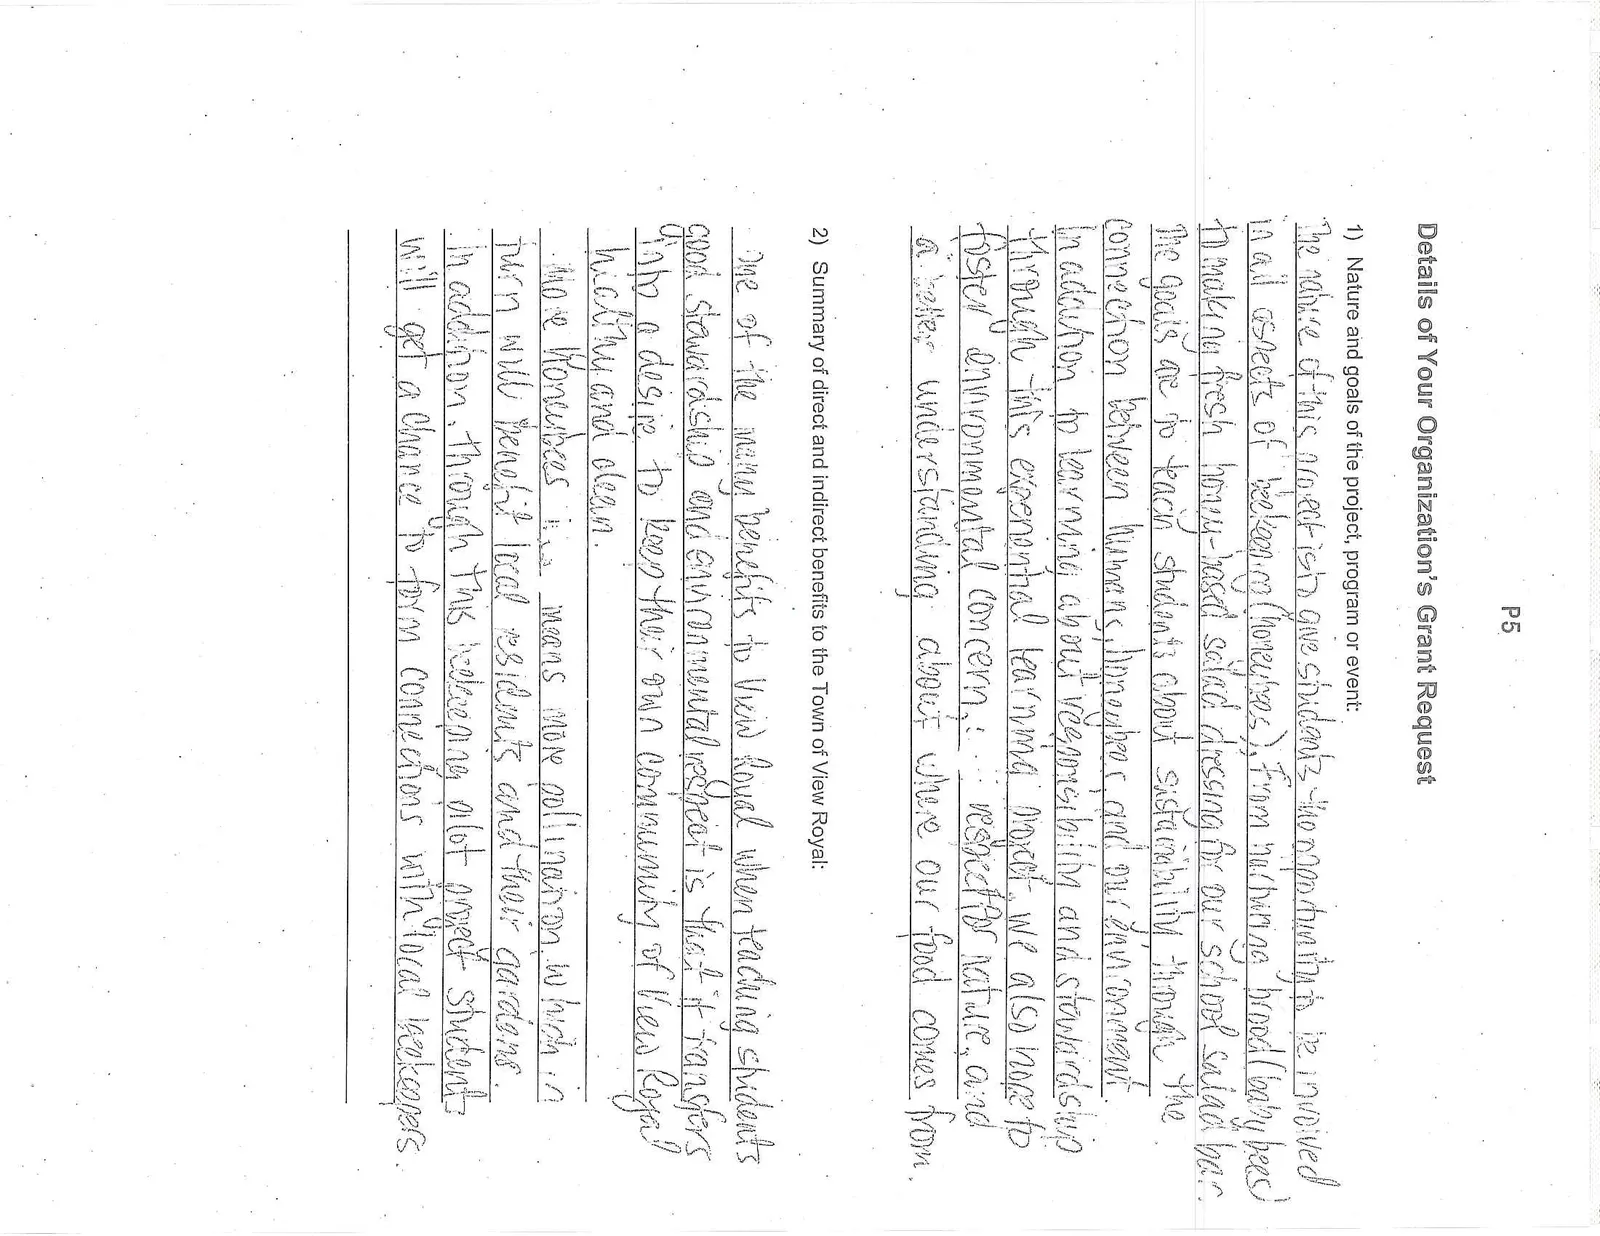 P5
Details of Your Organization's Grant Request
1) Nature and goals of the project, program or event:
The nature of this project is to give students the opportunity to be involved
in all aspects of beekeeping (honeybees), from nurturing brood (baby bees)
to making fresh honey-based salad dressing for our school salad bar.
The goals are to teach students about sustainability through the
connection between humans, honeybees, and our environment.
In addition to learning about responsibility and stewardship
through this experiential learning project, we also hope to
foster environmental concern, respect for nature, and
a better understanding about where our food comes from.
2) Summary of direct and indirect benefits to the Town of View Royal:
One of the many benefits to View Royal when teaching students
good stewardship and environmental respect is that it transfers
into a desire to keep their own community of View Royal
healthy and clean.
More honeybees means more pollination, which in
turn will benefit local residents and their gardens.
In addition, through this beekeeping pilot project students
will get a chance to form connections with local beekeepers.